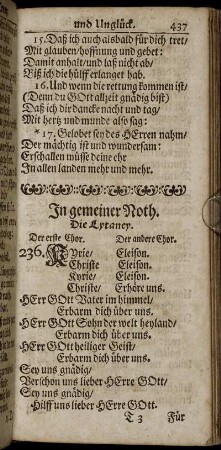 und Unglück. 437
15. Daß ich auch alsbald für dich tret/
Mit glauben/hoffnung und gebet:
Damit anhalt/und laß nicht ab/
Biß ich die hülff erlanget hab.
16. Und wenn die rettung kommen ist/
(Denn du GOtt allzeit gnädig bist)
Daß ich dir dancke nacht und tag/
Mit hertz und munde also sag:
* 17. Gelobet sey des HErren nahm/
Der mächtig ist und wundersam:
Erschallen müsse deine ehr
In allen landen mehr und mehr.
In gemeiner Noth.
Die Lytaney.
Der erste Chor. Der andere Chor.
236. Kyrie/ Eleison.
Christe Eleison.
Kyrie/ Eleison.
Christe/ Erhöre uns.
HErr GOtt Vater im himmel/
Erbarm dich über uns.
HErr GOtt Sohn der welt heyland/
Erbarm dich über uns.
HErr GOtt heiliger Geist/
Erbarm dich über uns.
Sey uns gnädig/
Verschon uns lieber HErre GOtt/
Sey uns gnädig/
Hilff uns lieber HErre GOtt.
T 3 Für